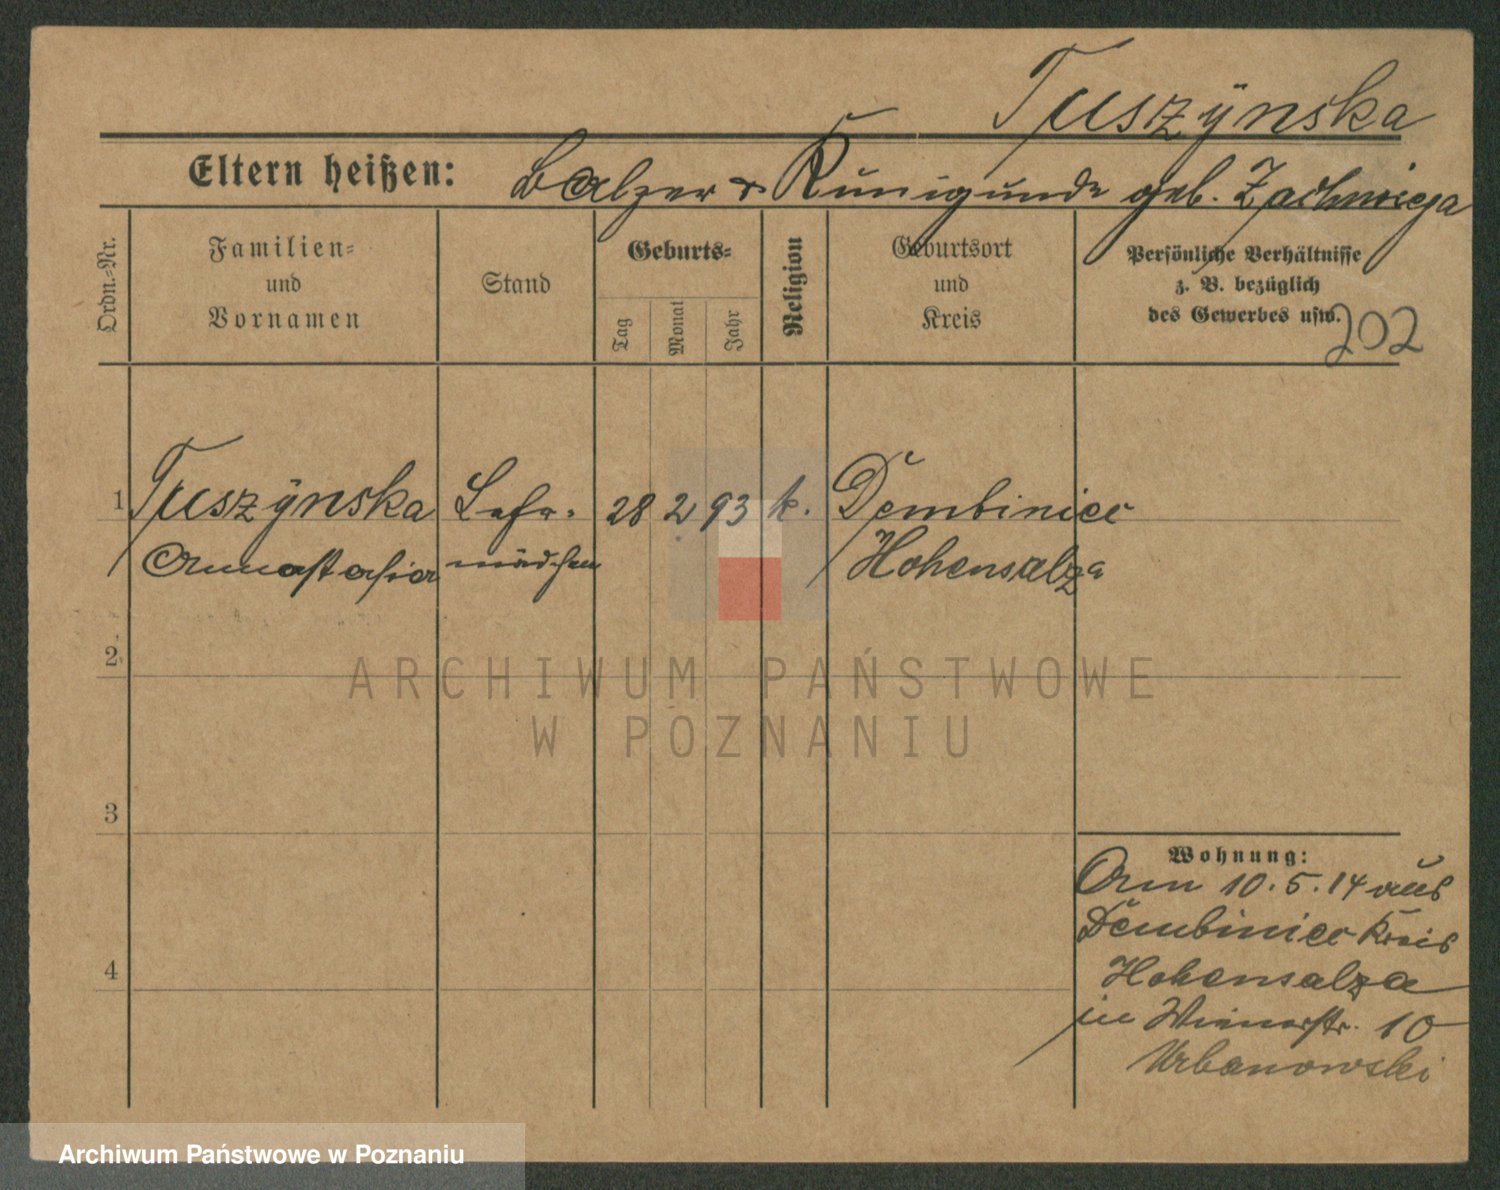 Tuszÿnska
Eltern heißen: Balzer & Kunigunde geb. Zachwieja
Ordn.-Nr.
Familien-
und
Vornamen
Stand
Geburts-
Tag
Monat
Jahr
Religion
Geburtsort
und
Kreis
Persönliche Verhältnisse
z. B. bezüglich
des Gewerbes usw.
202
1 Tuszÿnska Lehr- 28 2 93 k. Dembiniec
Annastasia mädchen Hohensalza
2
3
4
Wohnung:
Am 10.5.14 aus
Dembiniec Kreis
Hohensalza
in Wienerstr. 10
Urbanowski
ARCHIWUM PAŃSTWOWE
W POZNANIU
Archiwum Państwowe w Poznaniu